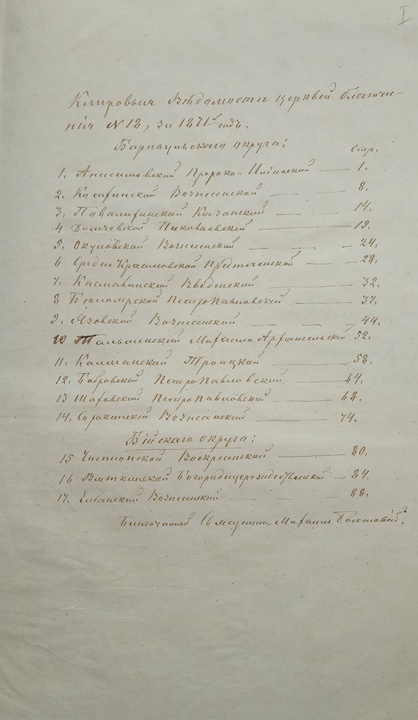 I
Клировыя Вѣдомости церквей благочи-
нія № 18, за 1871й годъ.
Барнаульскаго округа:
Стр.
1. Пророко-Ильинской — 1.
2. Вознесенской — 8.
3. Казанской — 14.
4 Николаевской — 19.
5. Окуловской Вознесенской — 24.
6 Средне Красиловской Предтеченской — 28.
7. Касмалинской Введенской — 32.
8 Петро Павловской — 37.
9. Язовской Вознесенской — 44.
10 Тальменской Михаило Архангельской 52.
11. Калманской Троицкой — 58.
12. Бобровской Петро Павловской — 64.
13 Шаховской Петро Павловской — 68.
14. Сорокинской Вознесенской 74.
Бійскаго округа:
15 Чистюнской Воскресенской — 80.
16 Вяткинской Богородицерождественской — 84.
17. Елбанской Вознесенской — 88.
Благочинный Священникъ Михаилъ